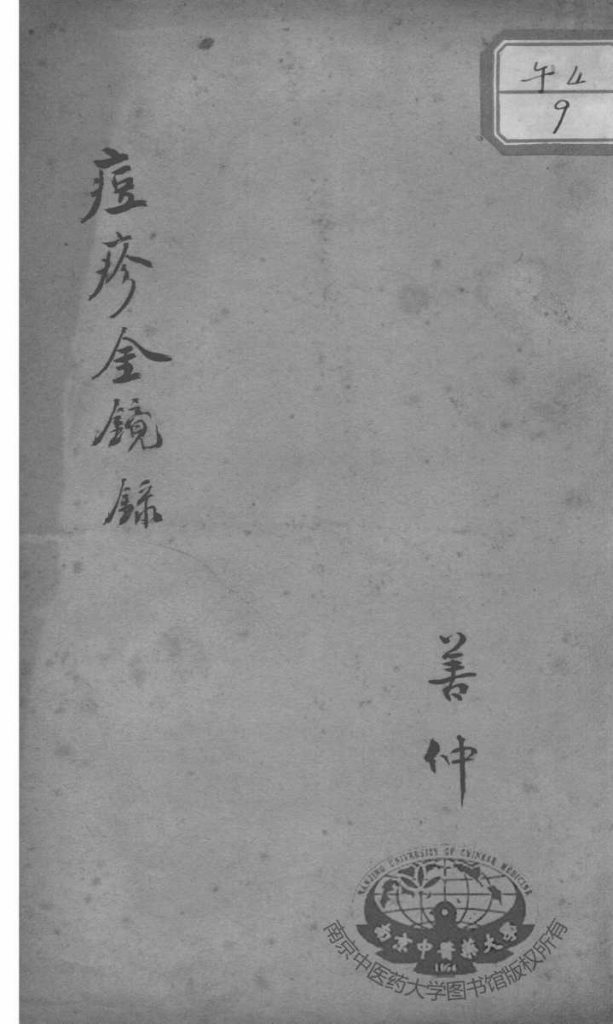 午4
9
痘疹金镜録
善仲
NANJING UNIVERSITY OF CHINESE MEDICINE
南京中醫藥大學
1954
南京中医药大学图书馆版权所有